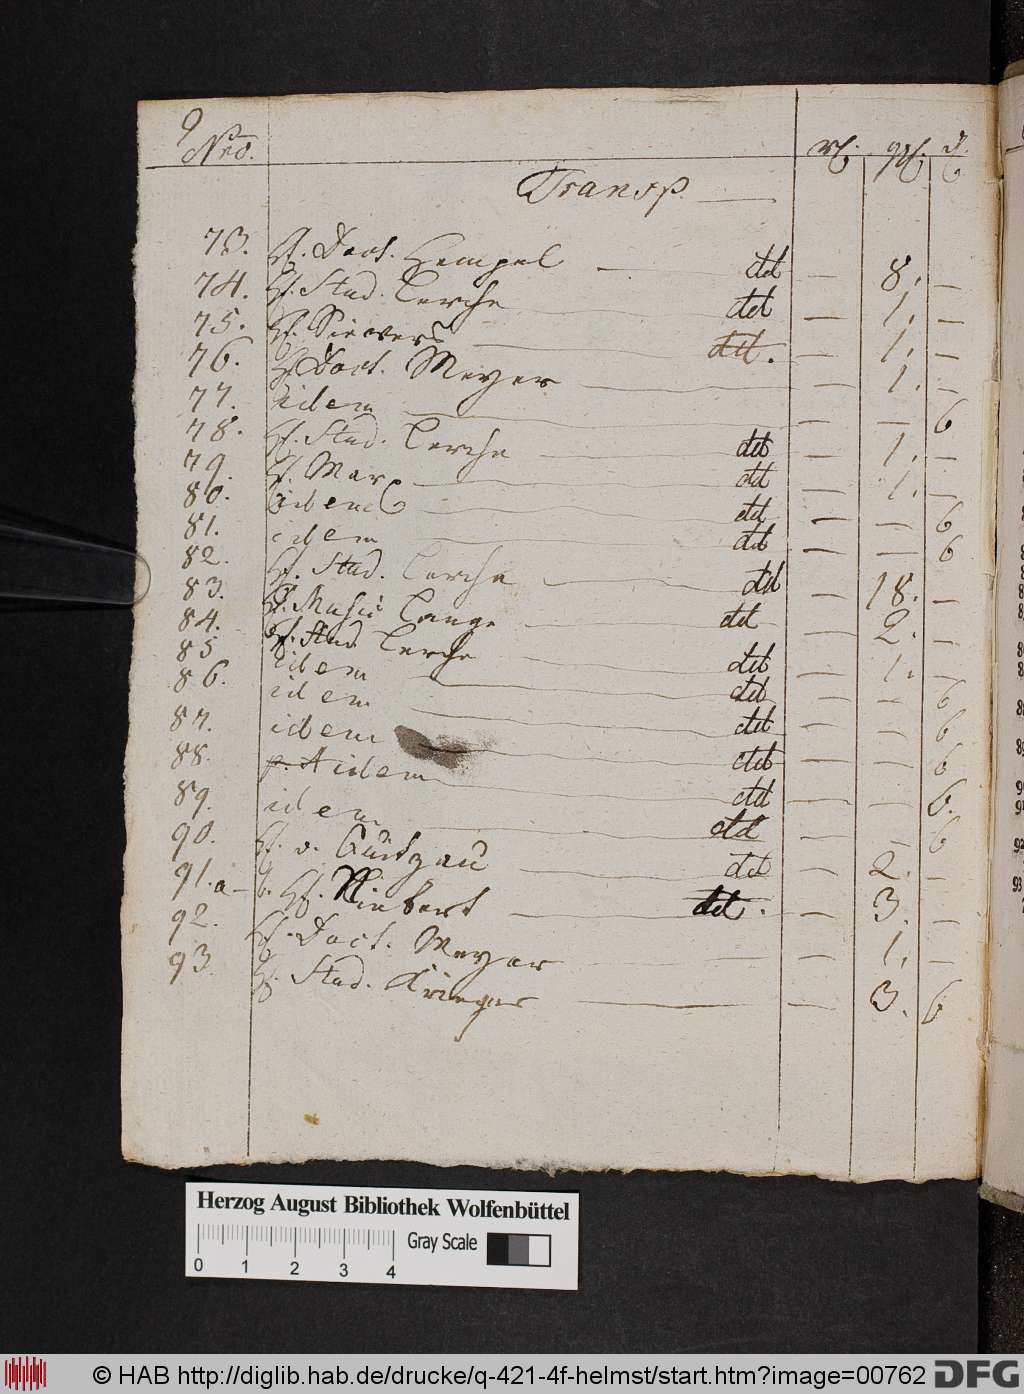 9
Nro. rf. ggl. d.
Transp.
73. H. Doct. Hempel — dd — 8. —
74. H. Stud. Lerche — dd — 1. —
75. H. Sievers — dd. — 1. —
76. H. Doct. Meyer — — 1. —
77. idem — — — 6
78. H. Stud. Lerche — dd — 1. —
79. H. Mar — dd — 1. —
80. idem — dd — — 6
81. idem — dd — — 6
82. H. Stud. Lerche — dd — 18. —
83. H. Music Lange — dd — 2. —
84. H. Stud Lerche — dd — 1. —
85 idem — dd — — 6
86. idem — dd — — 6
87. idem — dd — — 6
88. idem — dd — — 6.
89. idem — dd — — 6
90. H. v. — dd — 2. —
91. a — b. H. Niebert — dd. — 3. —
92. H. Doct. Meyer — — 1. —
93 H. Stud. Krieger — — 3. 6
Herzog August Bibliothek Wolfenbüttel
Gray Scale
0 1 2 3 4
© HAB http://diglib.hab.de/drucke/q-421-4f-helmst/start.htm?image=00762 DFG